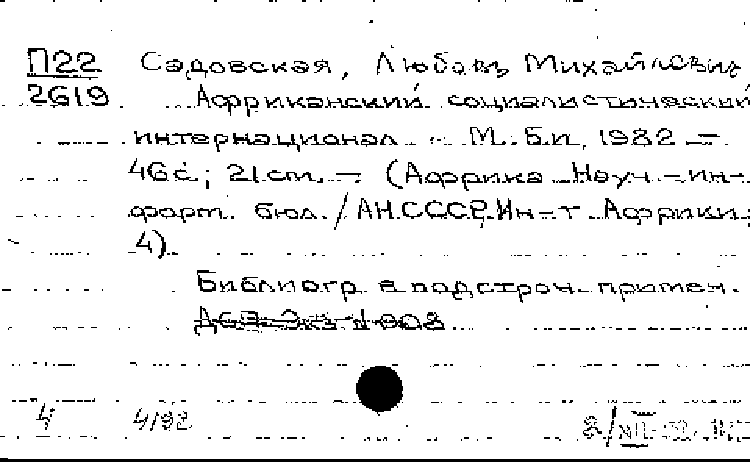 П22 Садовская, Любовь Михайловна
2619 Африканский социалистический
интернационал. - М.: Б.и, 1982. -
46 с.; 21 cm. - (Африка. Науч.-ин-
форм. бюл. / АН СССР, Ин-т Африки;
4).
Библиогр. в подстроч. примеч.
4 4/92